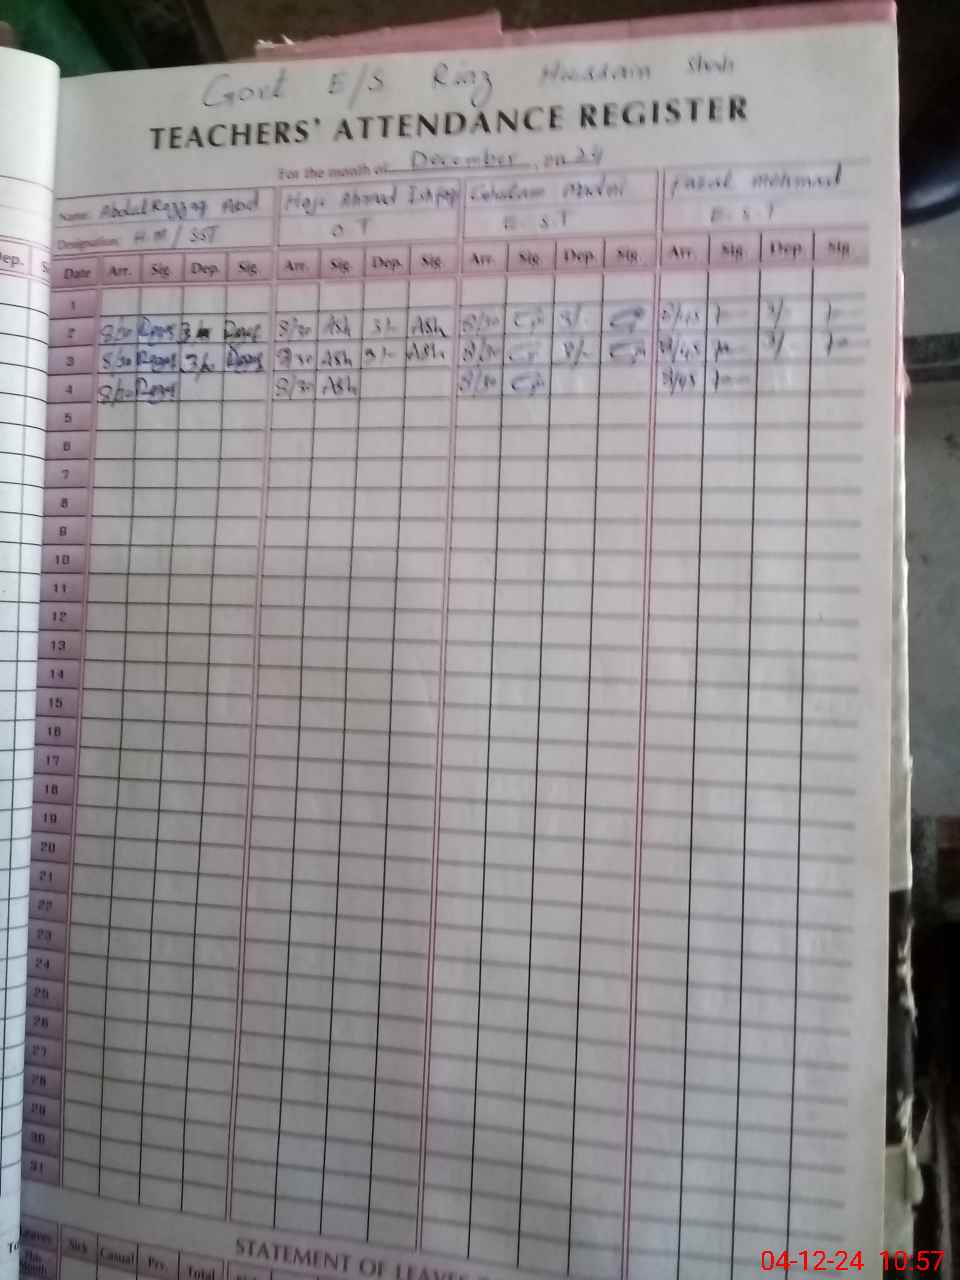 Govt E/S Riaz Hussain Shah
TEACHERS' ATTENDANCE REGISTER
For the month of December, on 24
Name: Abdul Razzaq Abid Haji Ahmad Ishfaq Ghulam Fazal Mehmood
Designation: H.M/SST O.T E.S.T E.S.T
Dep. S
Date Arr. Sig. Dep. Sig. Arr. Sig. Dep. Sig. Arr. Sig. Dep. Sig. Arr. Sig. Dep. Sig.
1
2 8/30 8/30 Ash 3/- Ash 8/30 3/- 8/45 3/-
3 8/30 3/- 8/30 Ash 3/- Ash 8/30 3/- 8/45 3/-
4 8/30 8/30 Ash 8/30 8/45
5
6
7
8
9
10
11
12
13
14
15
16
17
18
19
20
21
22
23
24
25
26
27
28
29
30
31
STATEMENT OF LEAVES
Leaves This Month Sick Casual Prv. Total
04-12-24 10:57